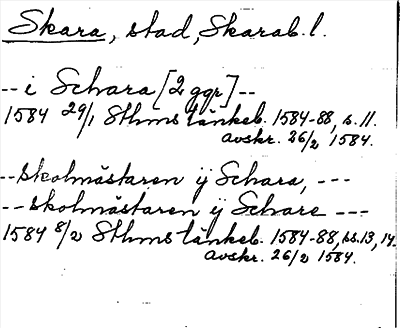 Skara, stad, Skarab. l.
-- i Schara [2 ggr] --
1584 29/1 Sthms tänkeb. 1584-88, s. 11.
avskr. 26/2 1584.
-- skolmästaren ÿ Schara, ---
-- skolmästaren ÿ Schare ---
1584 8/2 Sthms tänkeb. 1584-88, ss. 13, 14.
avskr. 26/2 1584.